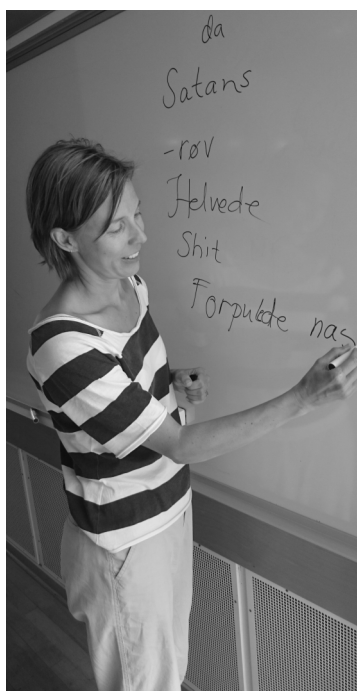 da
Satans
-røv
Helvede
Shit
Forpulede nas